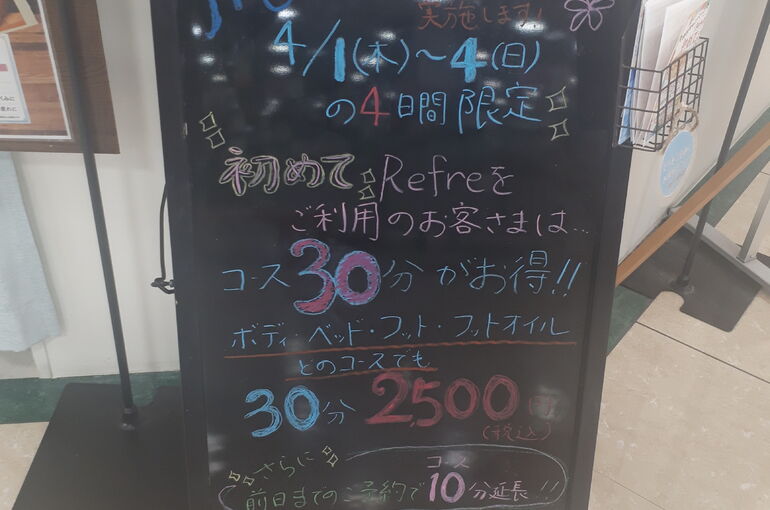 実施します!
4/1(木)~4(日)
の4日間限定
初めてRefreを
ご利用のお客さまは...
コース30分がお得!!
ボディ・ベッド・フット・フットオイル
どのコースでも
30分 2,500円
(税込)
さらに
前日までのご予約でコース10分延長!!